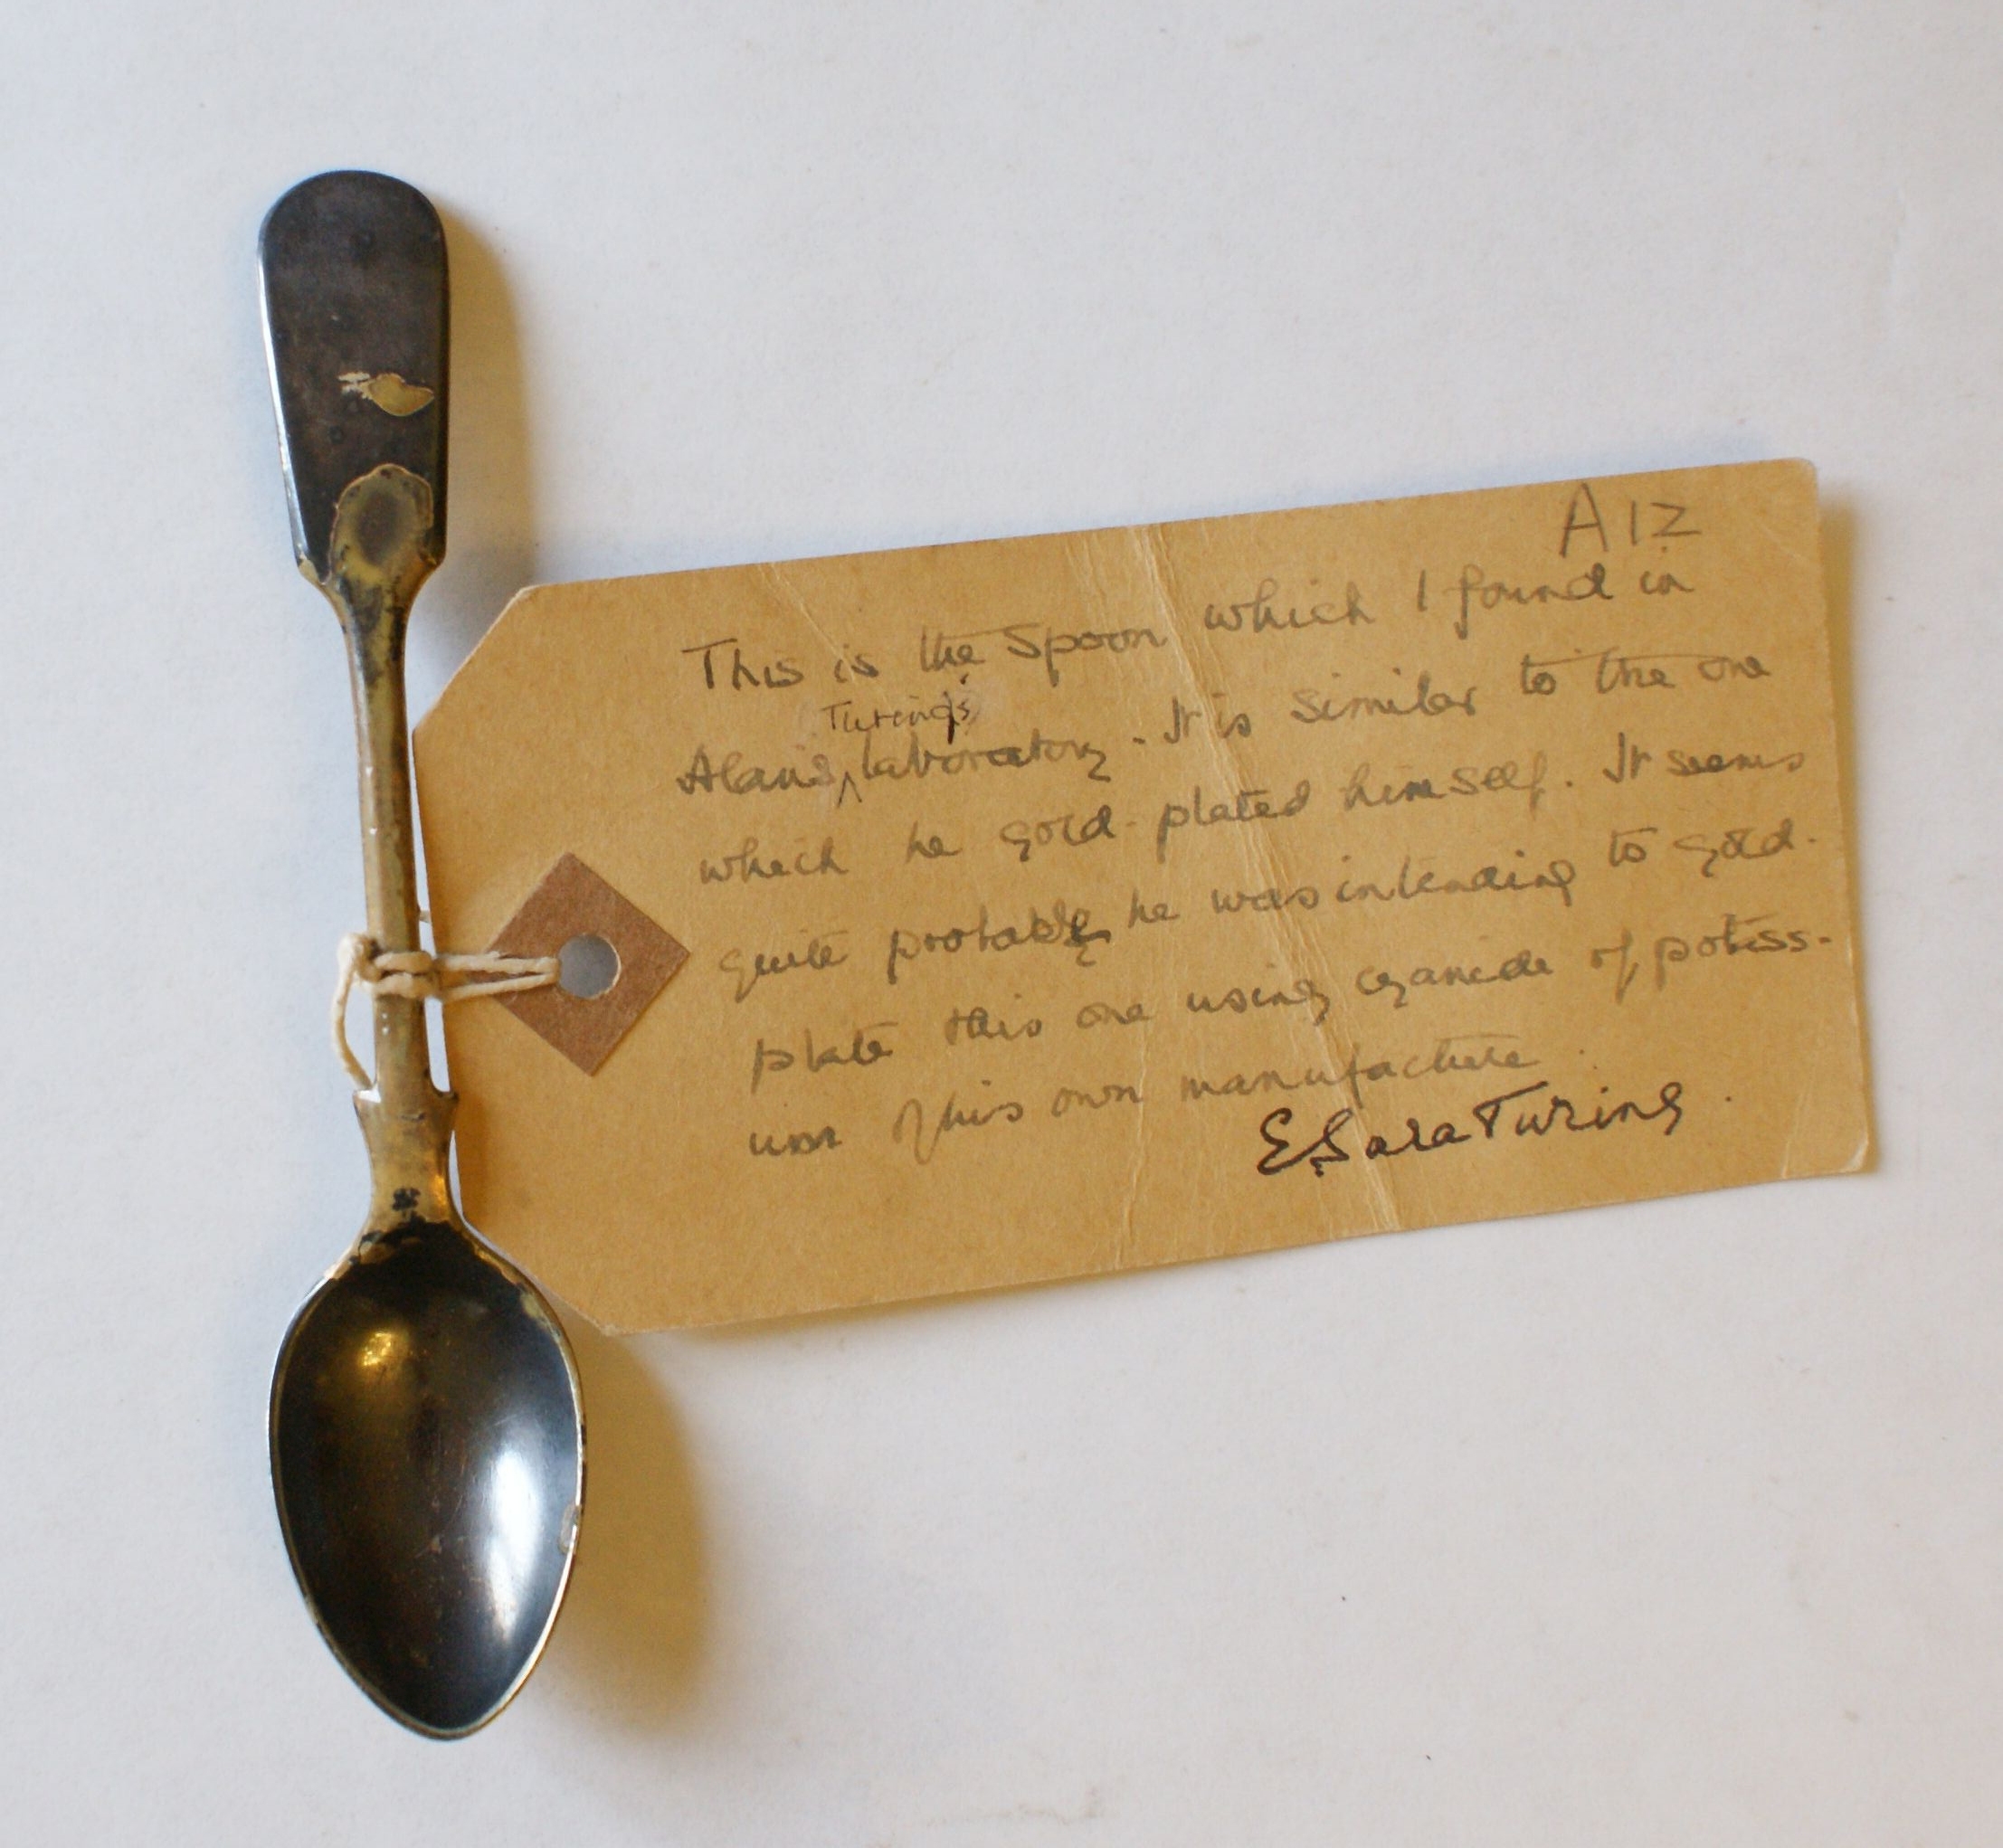 A12
This is the spoon which I found in
Turing's
Alan's ^ laboratory. It is similar to the one
which he gold-plated himself. It seems
quite probable he was intending to gold-
plate this one using cyanide of potass-
ium of his own manufacture.
E. Sara Turing.